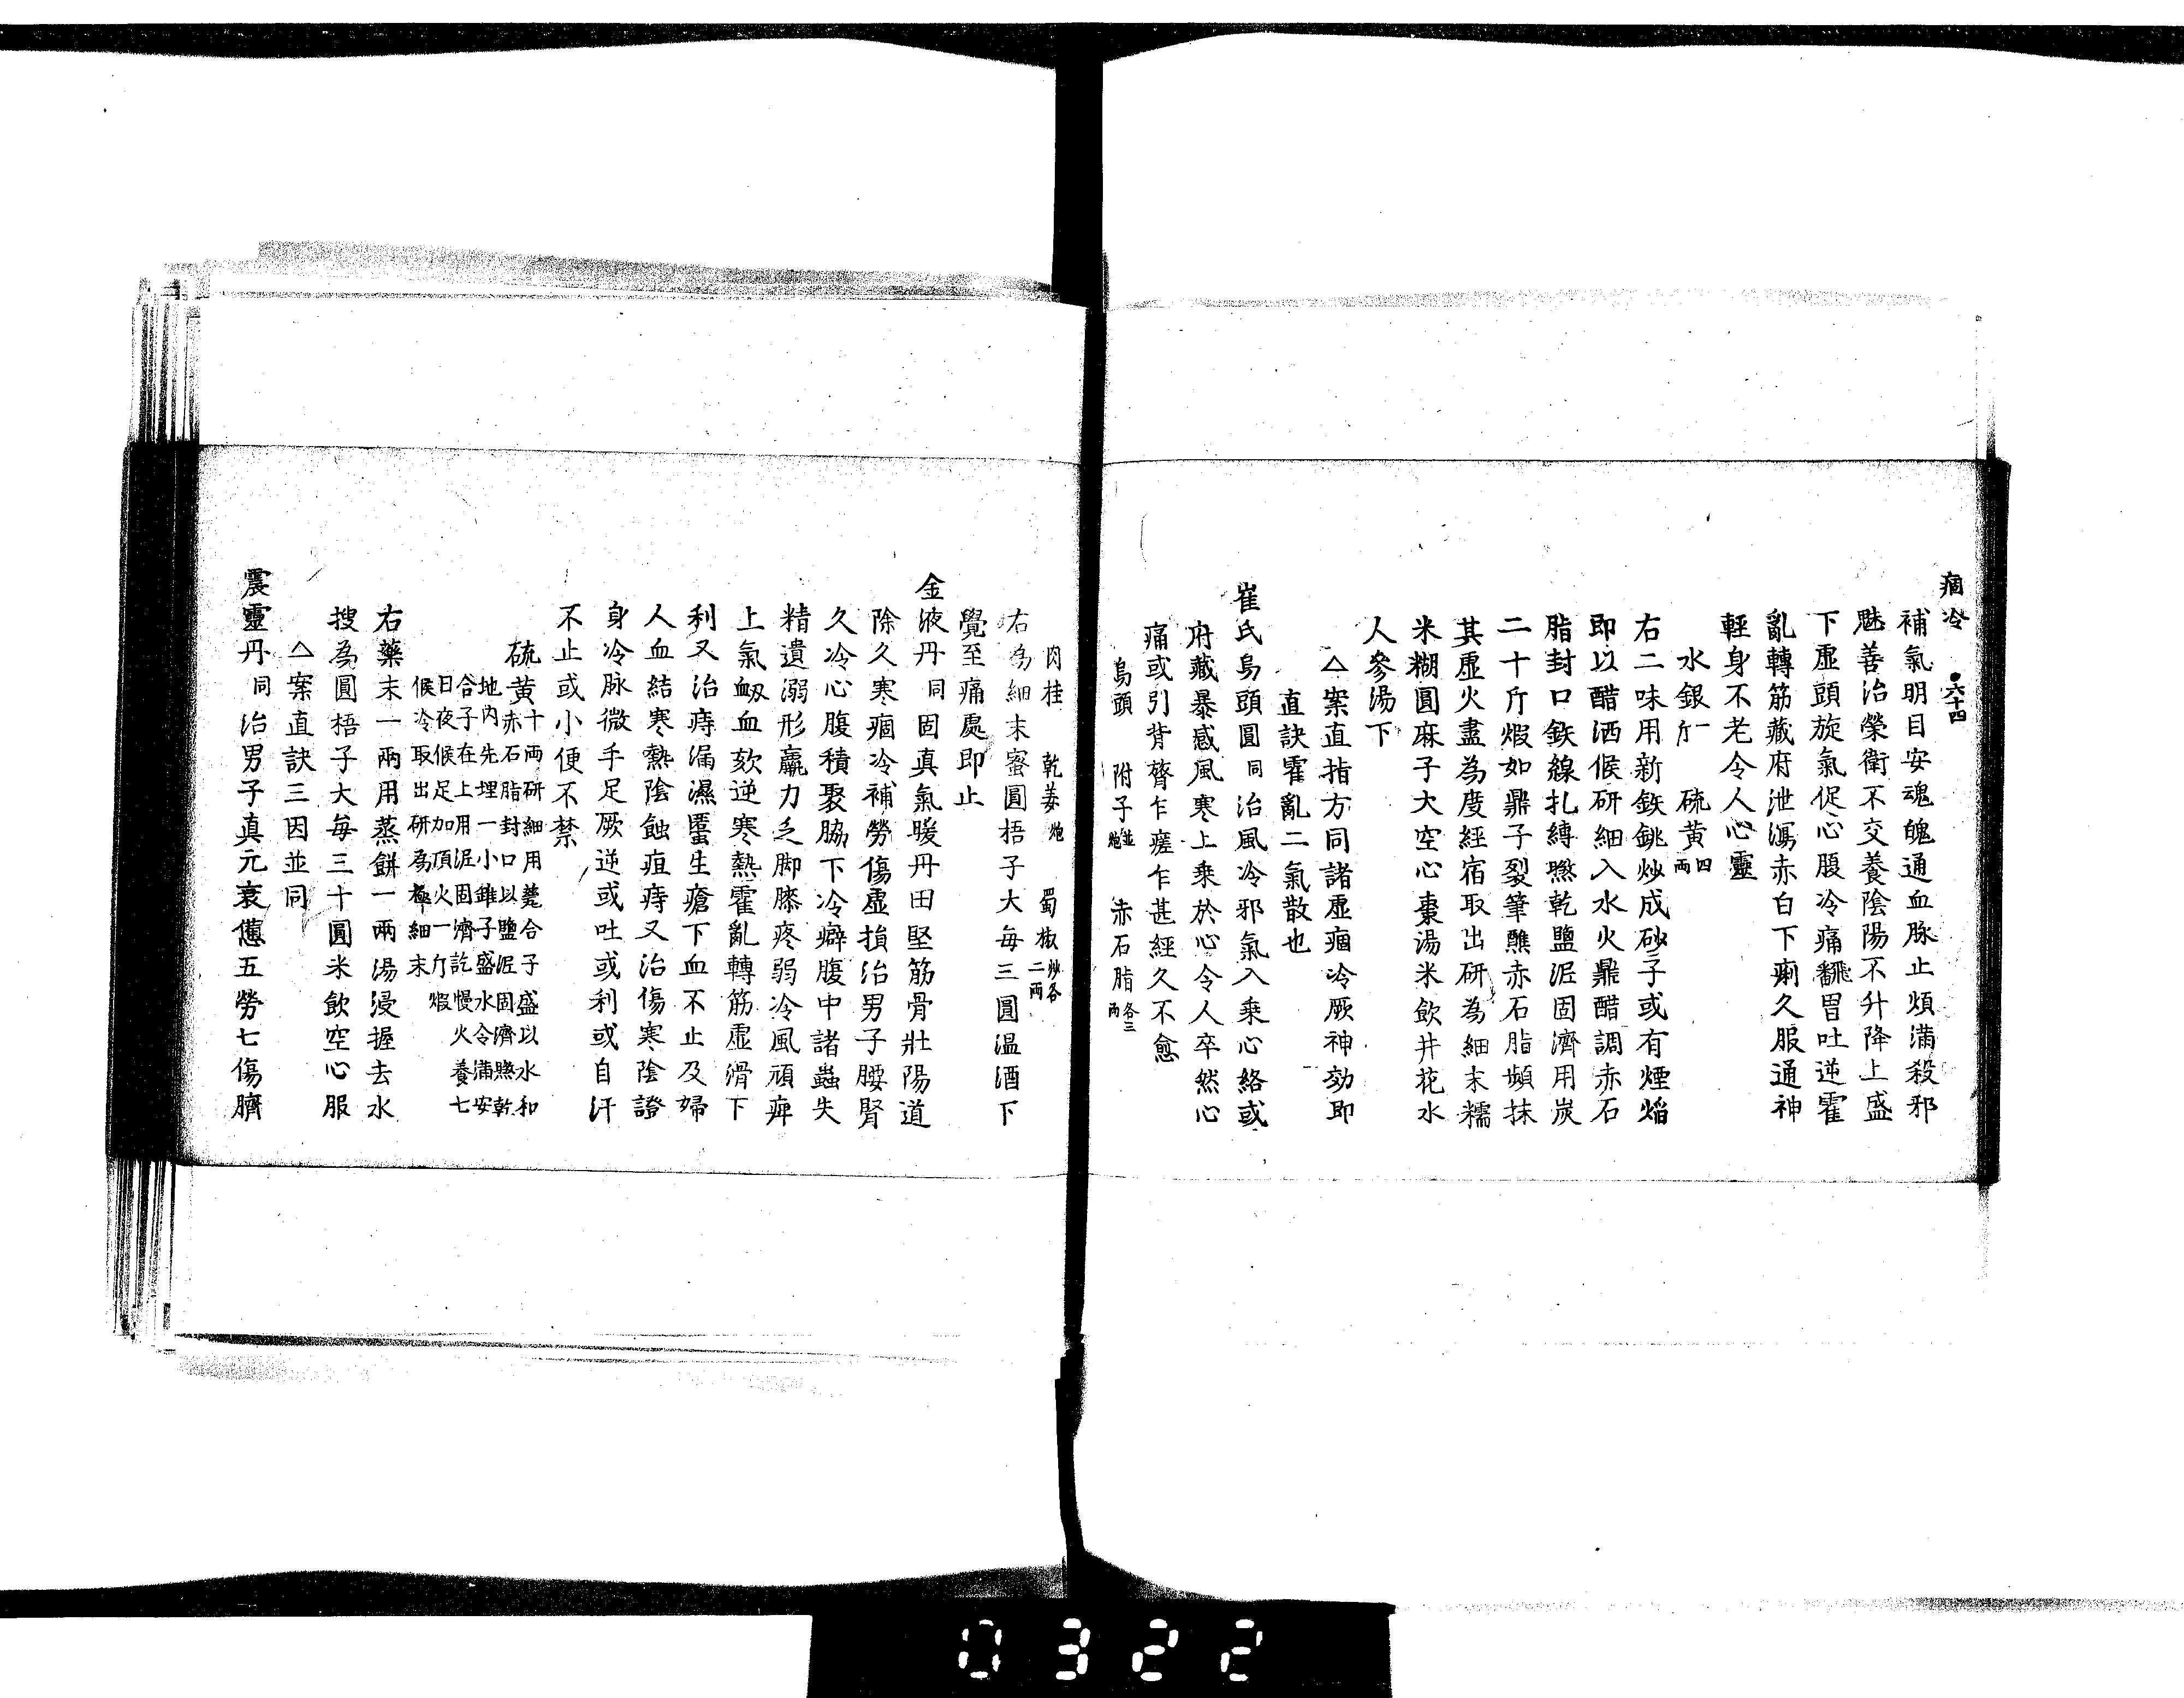 痼冷 •六十四
補氣明目安魂魄通血脉止煩満殺邪
魅善治榮衛不交養陰陽不升降上盛
下虚頭旋氣促心腹冷痛翻胃吐逆霍
亂轉筋藏府泄瀉赤白下痢久服通神
輕身不老令人心靈
水銀一斤 硫黄四両
右二味用新鉄銚炒成砂子或有煙焰
即以醋洒候研細入水火鼎醋調赤石
脂封口鉄線扎縛㬠乾鹽泥固濟用炭
二十斤煅如鼎子裂筆蘸赤石脂頻抹
其虚火盡為度經宿取出研為細末糯
米糊圓麻子大空心棗湯米飲井花水
人參湯下
△案直指方同諸虚痼冷厥神効即
直訣霍亂二氣散也
崔氏烏頭圓同治風冷邪氣入乘心絡或
府藏暴感風寒上乘於心令人卒然心
痛或引背膂乍瘥乍甚經久不愈
烏頭 附子並炮 赤石脂各三両
肉桂 乾姜炮 蜀椒炒各二両
右為細末蜜圓梧子大毎三圓温酒下
覺至痛處即止
金液丹同固真氣暖丹田堅筋骨壯陽道
除久寒痼冷補勞傷虚損治男子腰腎
久冷心腹積聚脇下冷癖腹中諸蟲失
精遺溺形羸力乏脚膝疼弱冷風頑痺
上氣衂血欬逆寒熱霍亂轉筋虚滑下
利又治痔漏濕䘌生瘡下血不止及婦
人血結寒熱陰蝕疽痔又治傷寒陰證
身冷脉微手足厥逆或吐或利或自汗
不止或小便不禁
硫黄十両研細用甆合子盛以水和
赤石脂封口以鹽泥固濟㬠乾
地内先埋一小雖子盛水令満安
合子在上用泥固濟訖慢火養七
日夜候足加頂火一斤煅
候冷取出研為極細末
右藥末一兩用蒸餅一兩湯浸握去水
搜為圓梧子大毎三十圓米飲空心服
△案直訣三因並同
震靈丹同治男子真元衰憊五勞七傷臍